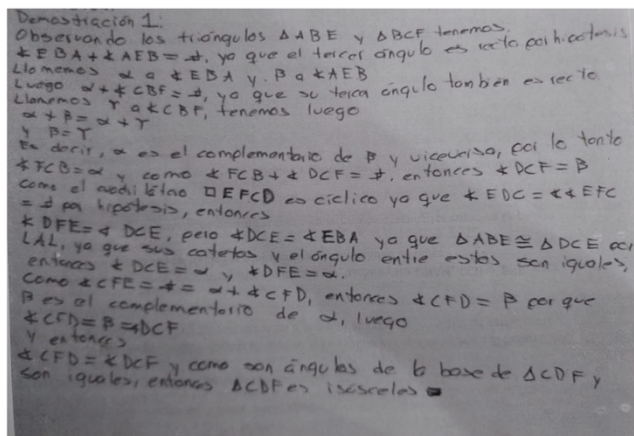 Demostración 1:
Observando los triángulos ΔABE y ΔBCF tenemos,
∢EBA+∢AEB=⦜, ya que el tercer ángulo es recto por hipótesis
Llamemos α a ∢EBA y β a ∢AEB
Luego α+∢CBF=⦜, ya que su tercer ángulo tombién es recto.
Llamemos γ a ∢CBF, tenemos luego
α+β=α+γ
y β=γ
Es decir, α es el complementario de β y viceversa, por lo tanto
∢FCB=α y como ∢FCB+∢DCF=⦜, entonces ∢DCF=β
Como el cuadrilátero □EFCD es cíclico ya que ∢EDC=∢∢EFC
=⦜ por hipótesis, entonces
∢DFE=∢DCE, pero ∢DCE=∢EBA ya que ΔABE≅ΔDCE por
LAL, ya que sus catetos y el ángulo entre estos son iguales,
entonces ∢DCE=α y ∢DFE=α.
Como ∢CFE=⦜=α+∢CFD, entonces ∢CFD=β porque
β es el complementario de α, luego
∢CFD=β=∢DCF
y entonces
∢CFD=∢DCF y como son ángulos de la base de ΔCDF y
son iguales, entonces ΔCDF es isósceles